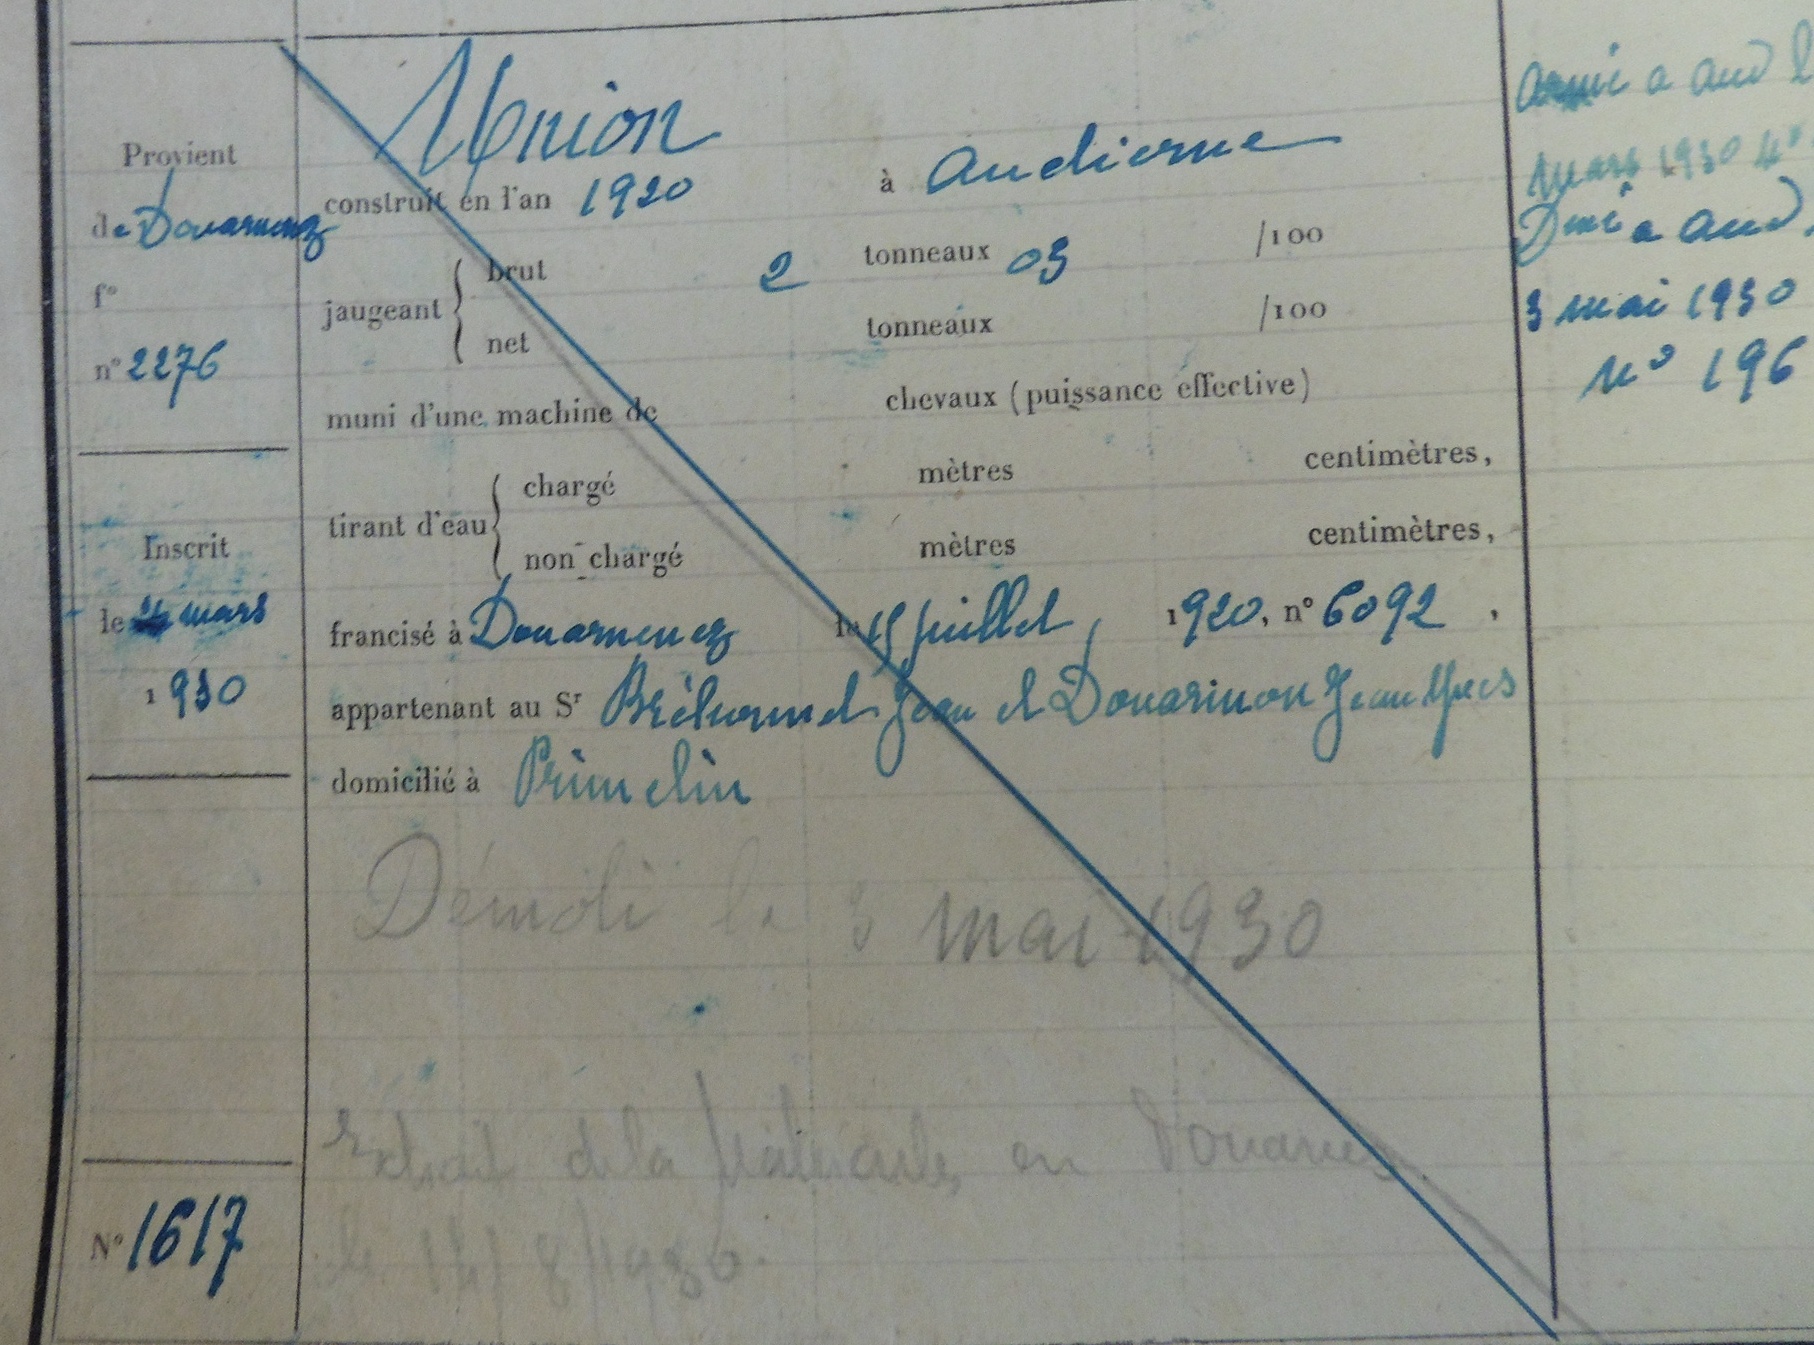 Union
Provient
de Douarnenez
f°
n° 2276
construit en l'an 1920 à Audierne
jaugeant { brut 2 tonneaux 03 /100
net tonneaux /100
muni d'une machine de chevaux (puissance effective)
tirant d'eau { chargé mètres centimètres,
non chargé mètres centimètres,
Inscrit
le mars
1930
francisé à Douarnenez le 15 juillet 1920, n° 6092,
appartenant au Sr Jean et Douarinou Jean Yves
domicilié à Primelin
Démoli le 3 mai 1930
Extrait de la en Douarnez
le
N° 1617
Armé a Aud
mars 1930 n°
Dmé a Aud.
3 mai 1930
n° 196